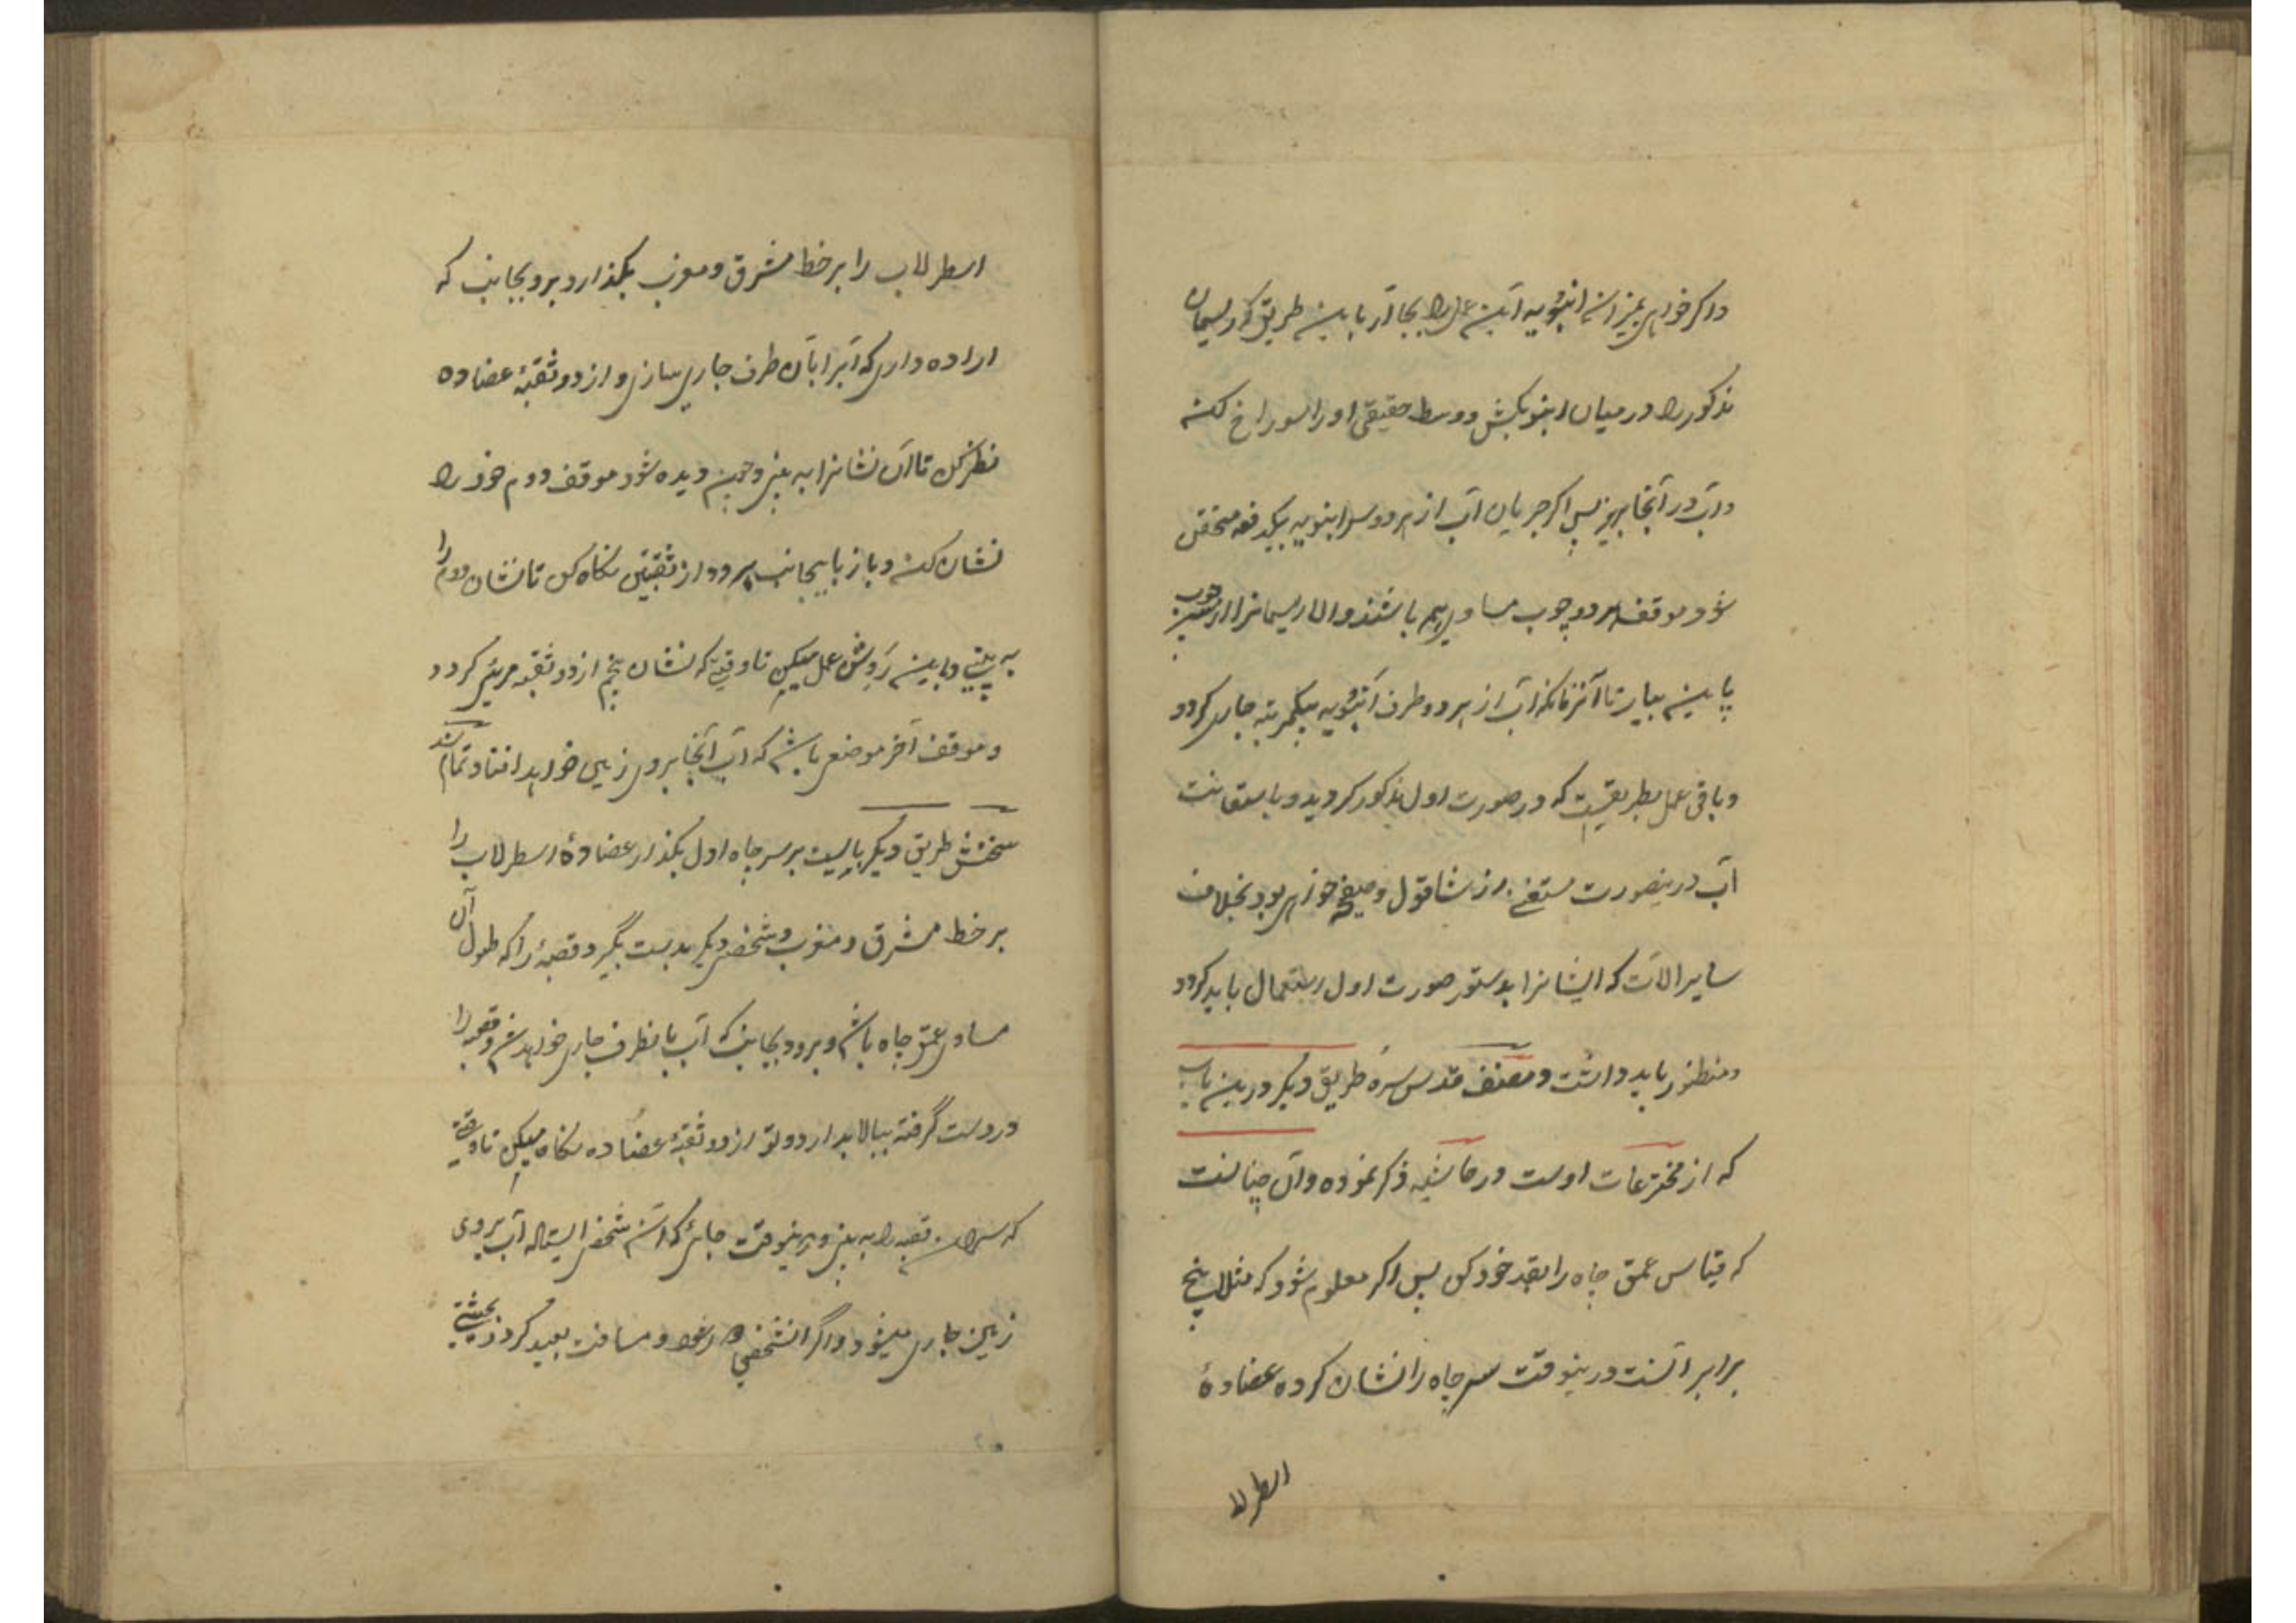 واکر خواهی بمیزان انبوبه این عمل را بجا آر باین طریق که ریسمان
مذکور را در میان انبوبه بکش و وسط حقیقی او را سوراخ کن
و آب در آنجا بریز پس اکر جریان آب از هر دو سر انبوبه بیکدفعه متحقق
شود موقف هر دو چوب مساوی هم باشند والا ریسمانرا از سر چوب
پایین بیار تا آنزمانکه آب از هر دو طرف انبوبه بیکمرتبه جاری کردد
و باقی عمل بطریقیست که در صورت اول مذکور کردید و باستعانت
آب درینصورت مستغنی از شاقول و صفیحه خواهی بود بخلاف
سایر الات که ایشانرا بدستور صورت اول استعمال باید کرد
و منظور باید داشت و مصنف قدس سره طریق دیکر درین باب
که از مخترعات اوست در حاشیه ذکر نموده و آن چنانست
که قیاس عمق چاه را بقد خود کن پس اکر معلوم شود که مثلا پنج
برابر آنست درینوقت سر چاه را نشان کرده عضادهٔ
اسطرلا
اسطرلاب را بر خط مشرق و مغرب بکذار و برو بجانب که
اراده داری که آبرا بآن طرف جاری سازی و از دو ثقبهٔ عضاده
نظر کن تا آن نشانرا به بینی و چون دیده شود موقف دوم خود را
نشان کن و باز بآنجانب برو و از ثقبتین نکاه کن تا نشان دوم را
به بینی و باین روش عمل میکن تا وقتی که نشان پنجم از دو ثقبه مرئی کردد
و موقف آخر موضعی باشد که آب آنجا بروی زمین خواهد افتاد تمام شد
سخنش طریق دیکر بایست بر سر چاه اول بکذار عضادهٔ اسطرلاب را
بر خط مشرق و مغرب و شخص دیکر بدست بگیرد قصبهٔ را که طول آن
مساوی عمق چاه باشد و برود بجانب که آب بانطرف جاری خواهد شد و قصبه را
در دست گرفته ببالا بدارد و تو از دو ثقبهٔ عضاده نکاه میکن تا وقتی
که سر قصبه را به بینی و درینوقت جائی که آن شخص ایستاده آب بروی
زمین جاری میشود و اگر انشخص دور رود و مسافت بعید کردد بحیثیتی